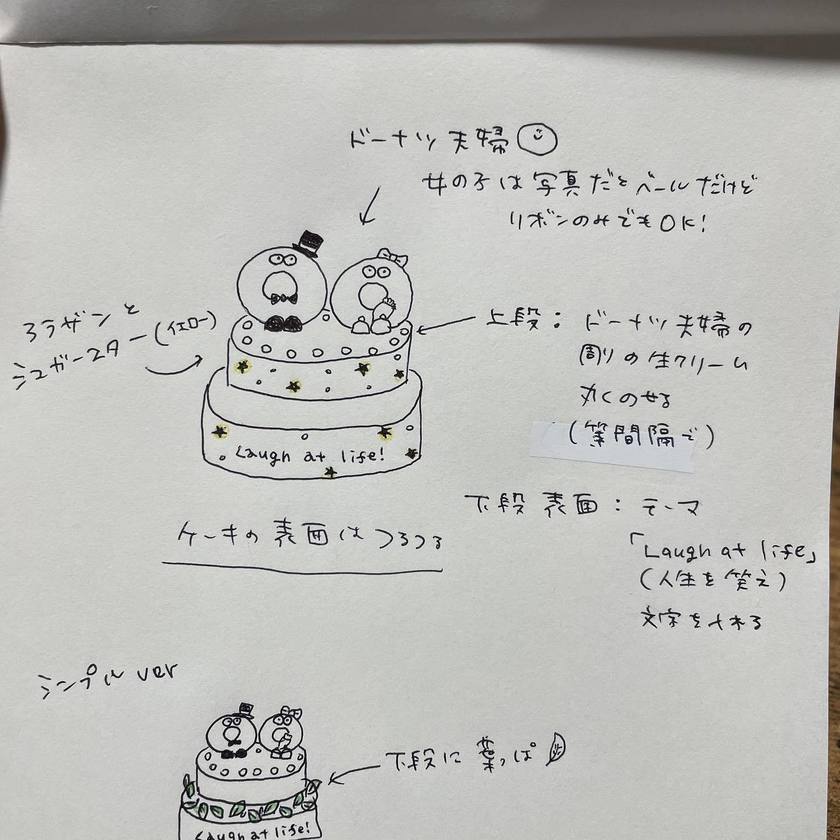 ドーナツ夫婦
女の子は写真だとベールだけど
リボンのみでもOK!
アラザンと
シュガースター(イエロー)
上段：ドーナツ夫婦の
周りの生クリーム
丸くのせる
(等間隔で)
Laugh at life!
下段 表面：テーマ
「Laugh at life」
(人生を笑え)
文字を入れる
ケーキの表面はつるつる
シンプル ver
下段に葉っぱ
Laugh at life!